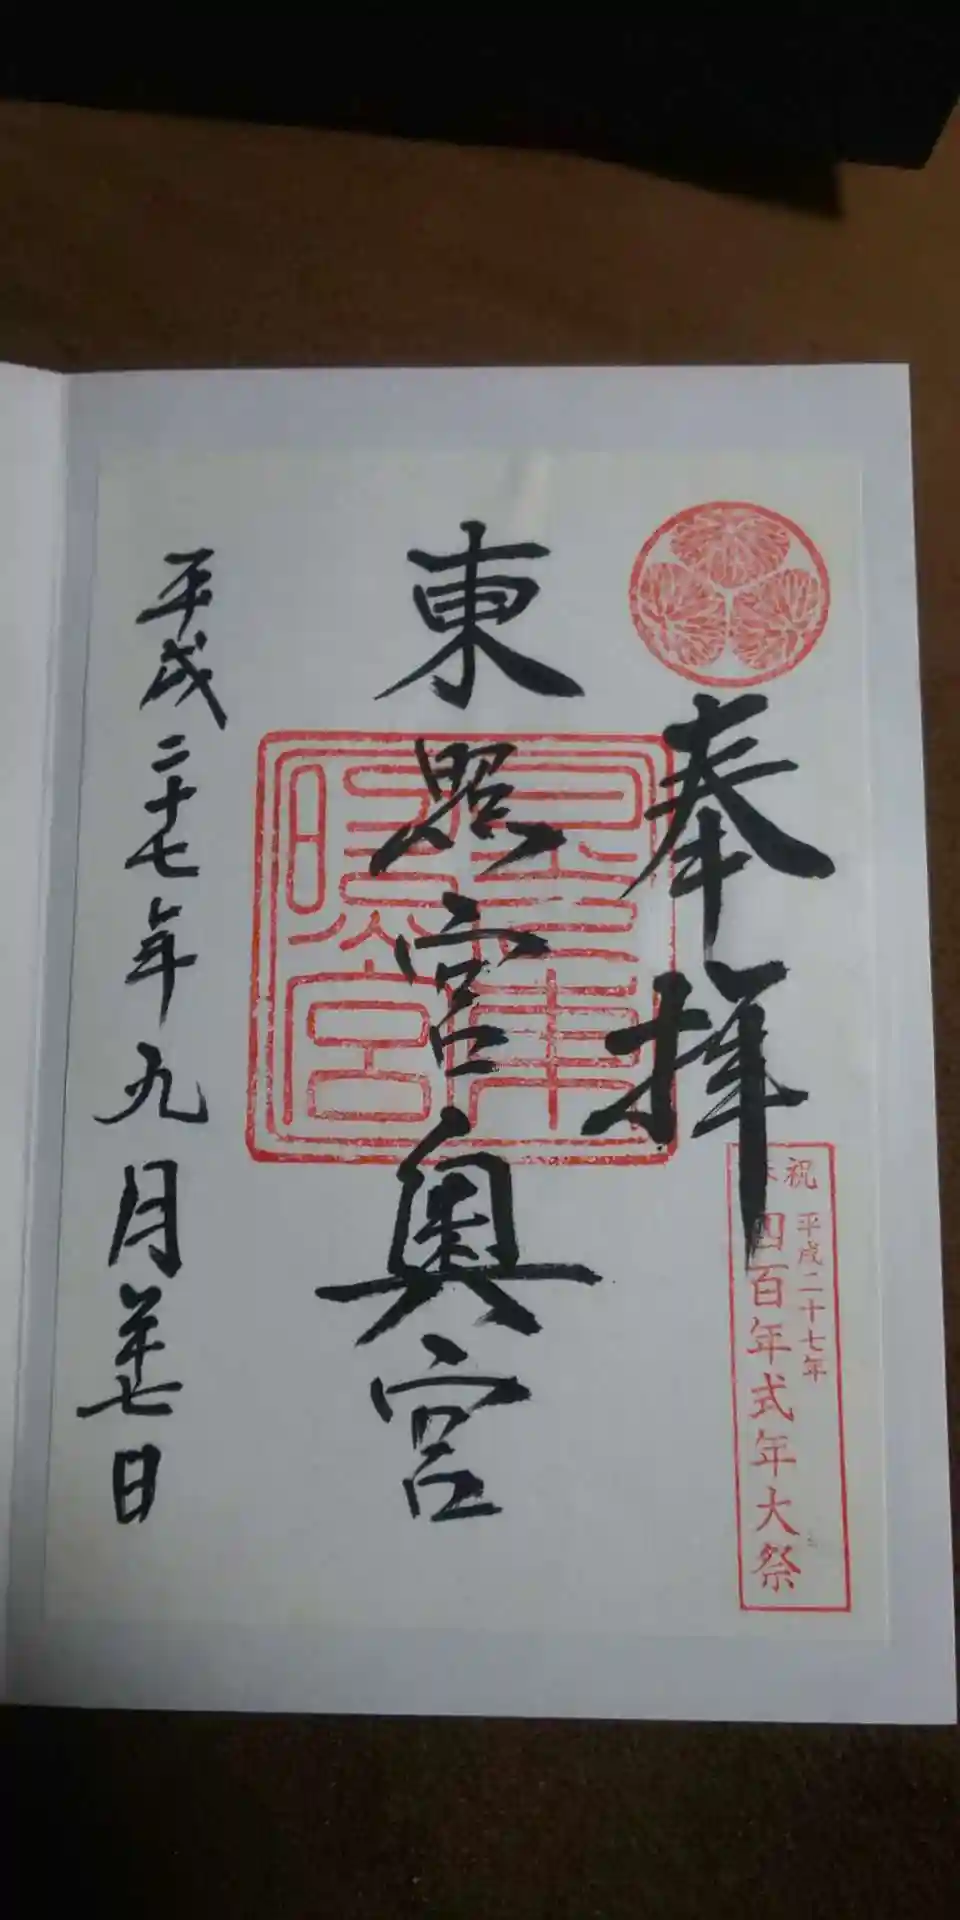 奉拝
祝
平成二十七年
四百年式年大祭
東照宮奥宮
平成二十七年九月廿七日